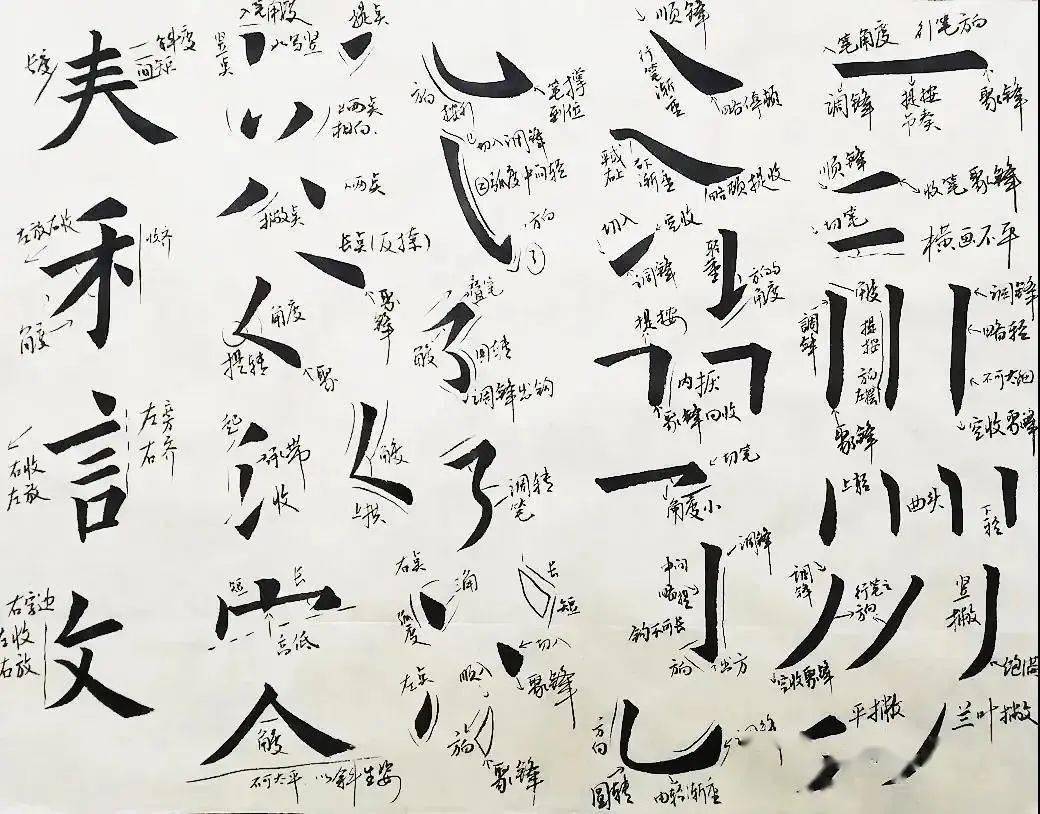 一笔角度 引笔方向
调锋
提按
节奏
聚锋
顺锋
收笔聚锋
切笔
横画不平
调锋
略轻
不可太细
空收聚锋
角度
提按
方向
左摆
調锋
聚锋
上轻
曲头
下轻
竖撇
饱满
調锋
行笔之
方向
空收聚锋
平撇
兰叶撇
顺锋
行笔渐重
略停顿
渐重
略顿提收
切入
空收
调锋
轻重
方向
角度
提按
内捩
聚锋回收
切笔
角度小
调锋
中间
略提
钩不可长
方向
出方
方向
圆转
由轻渐重
方向
按行
笔撑
到位
切入调锋
②弧度中间轻
方向
③
叠笔
回转
调锋出钩
调转
笔
右点
角
长
短
弧度
切入
聚锋
左点
顺入
方向
聚锋
入笔角度
竖点
提点
上两点
相向
撇点
长点(反捺)
聚锋
角度
提转
聚
承带
收
角度
短
长
高低
人
角度
不可太平 以斜生姿
夫
长度
斜度
间距
禾
左放右收
收齐
角度
言
左旁
右齐
右收
左放
文
右字边
左收
右放